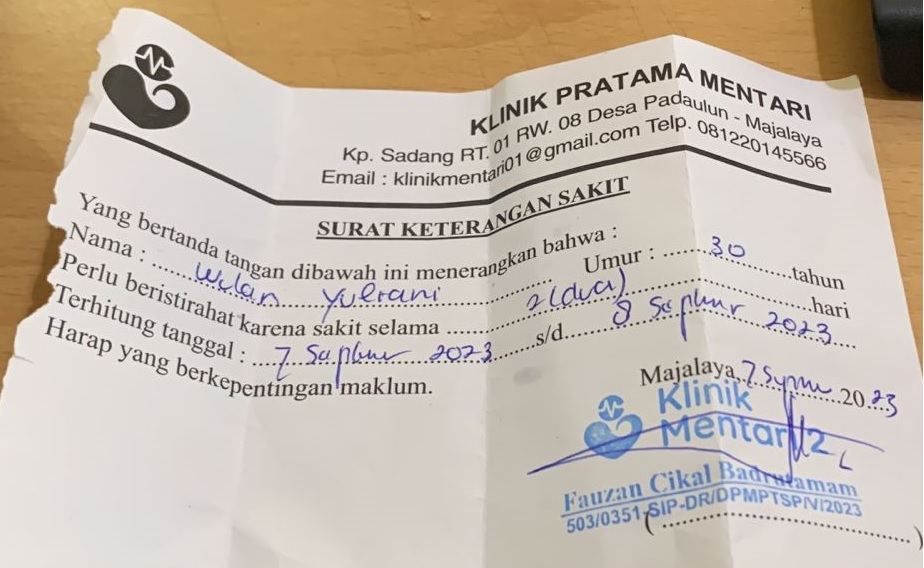 KLINIK PRATAMA MENTARI
Kp. Sadang RT. 01 RW. 08 Desa Padaulun - Majalaya
Email : klinikmentari01@gmail.com Telp. 081220145566
SURAT KETERANGAN SAKIT
Yang bertanda tangan dibawah ini menerangkan bahwa :
Nama : Wulan Yuliani Umur : 30 tahun
Perlu beristirahat karena sakit selama 2 (dua) hari
Terhitung tanggal : 7 September 2023 s/d. 8 September 2023
Harap yang berkepentingan maklum.
Majalaya, 7 September 2023
Klinik
Mentari 2
Fauzan Cikal Badrutamam
503/0351-SIP-DR/DPMPTSP/V/2023
(....................)